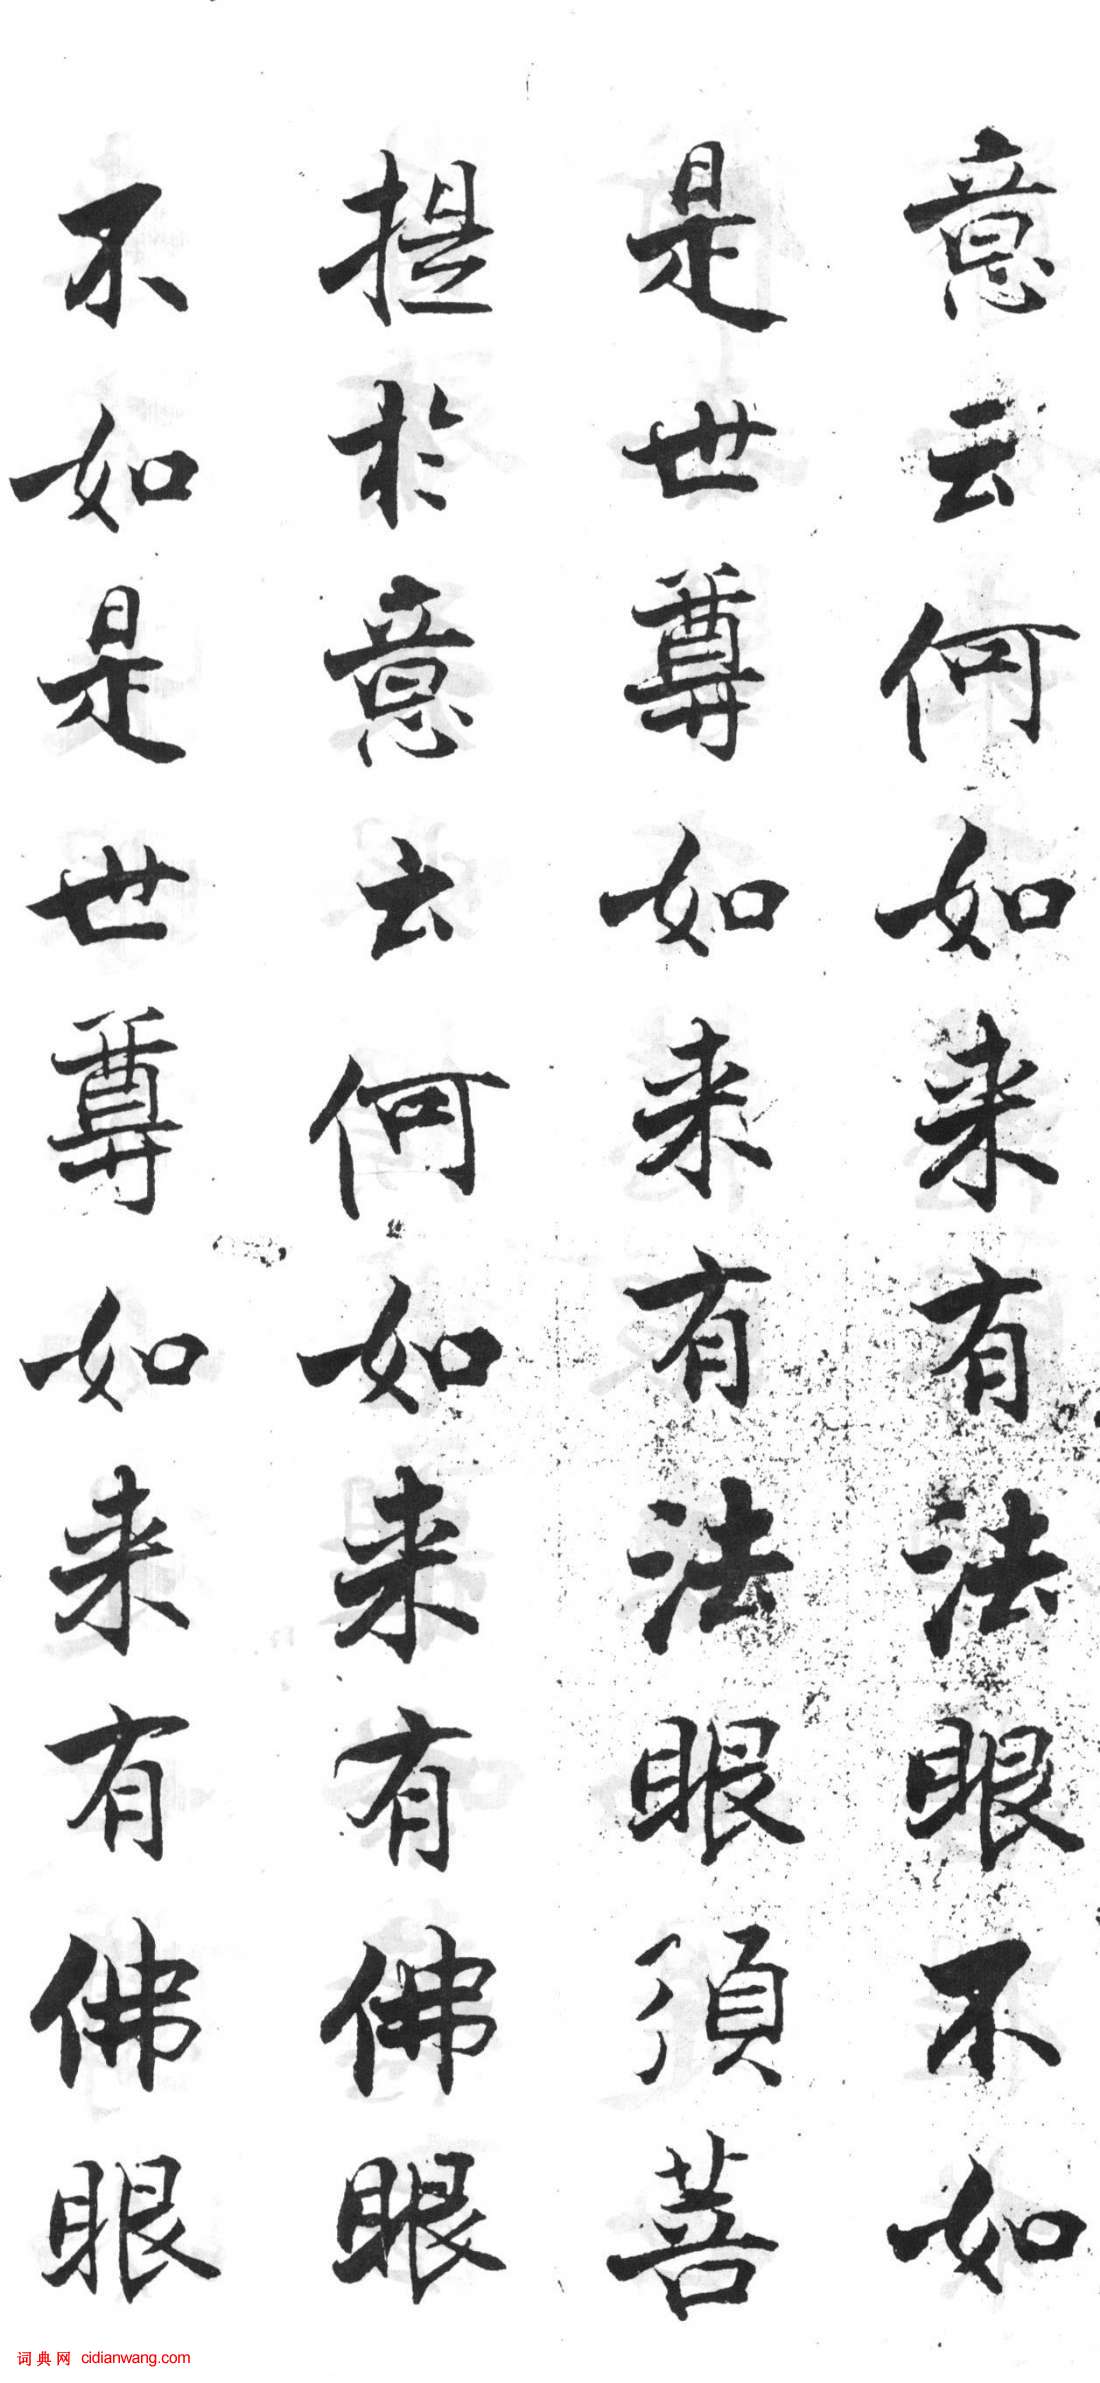 意云何如来有法眼不如
是世尊如来有法眼須菩
提於意云何如来有佛眼
不如是世尊如来有佛眼
词典网 cidianwang.com